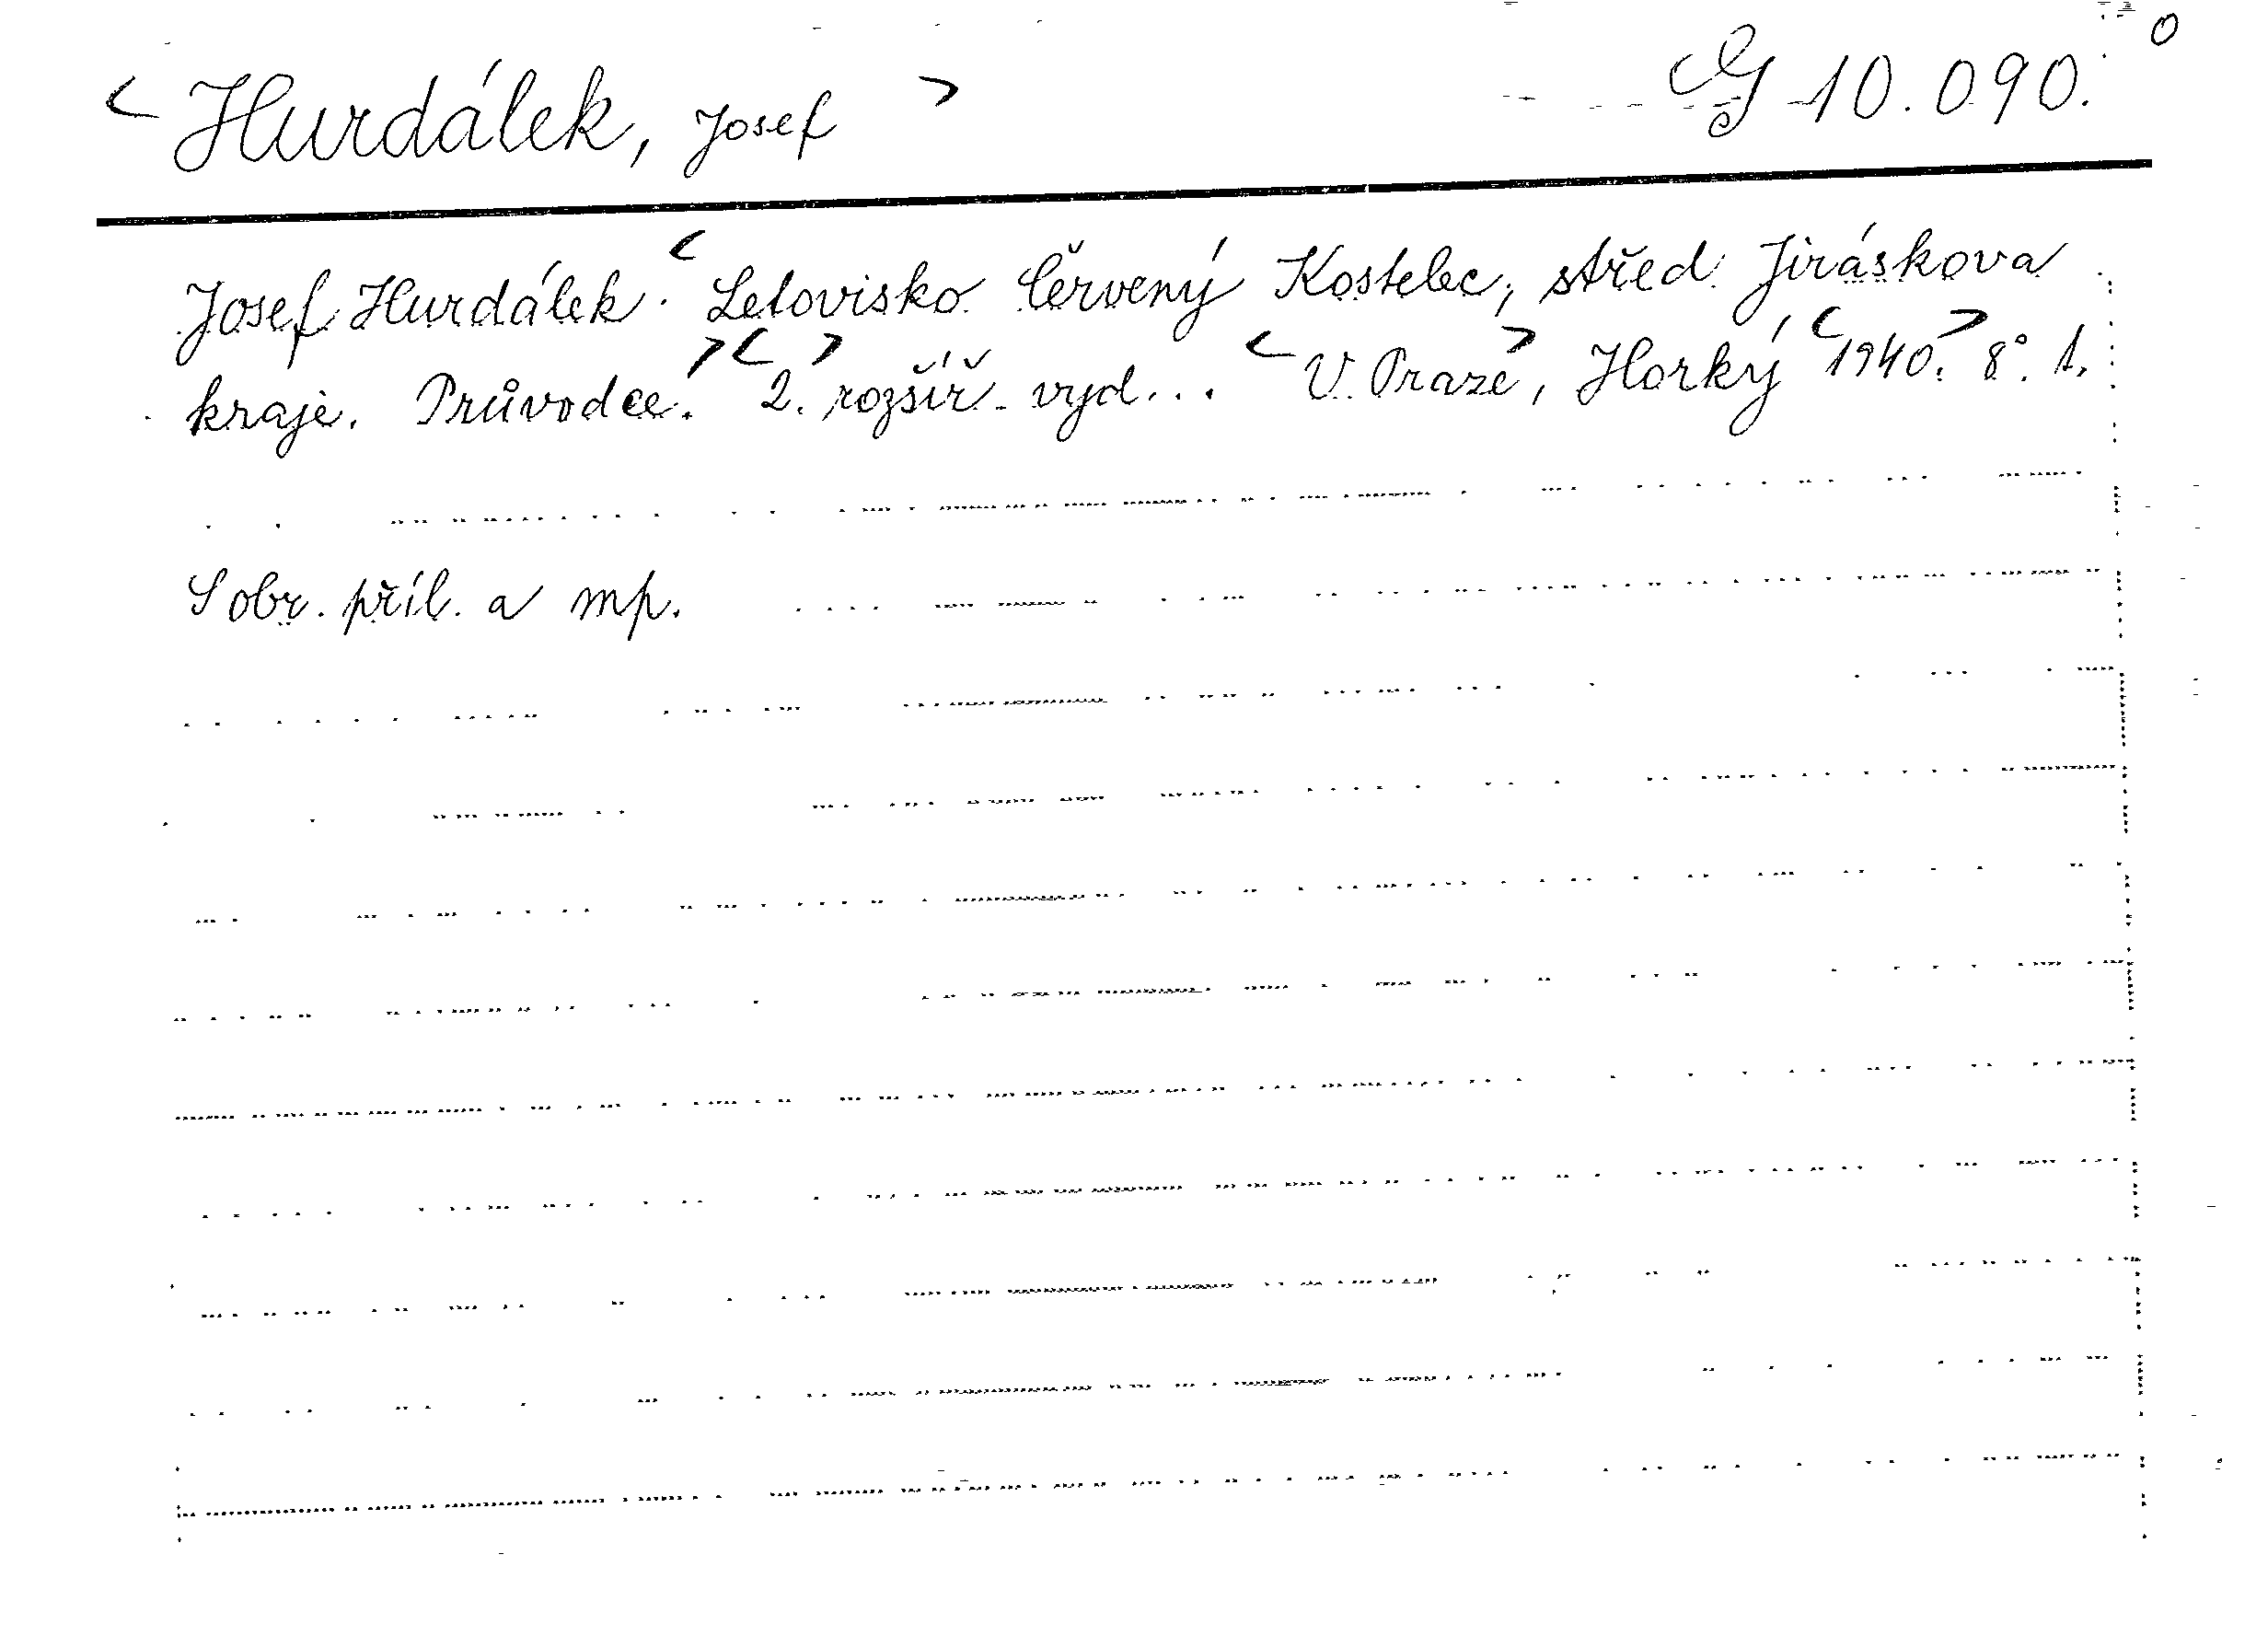 < Hurdálek, Josef > G 10.090. 0
Josef Hurdálek. < Letovisko Červený Kostelec, střed Jiráskova
kraje. Průvodce. > < 2. > rozšíř. vyd... < V Praze >, Horký < 1940. > 8°. 1.
S obr. příl. a mp.